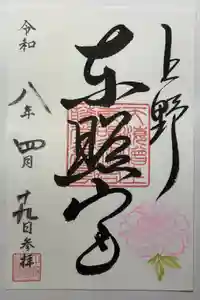 上野
東照宮
令和
八年
四月
廿九日参拝